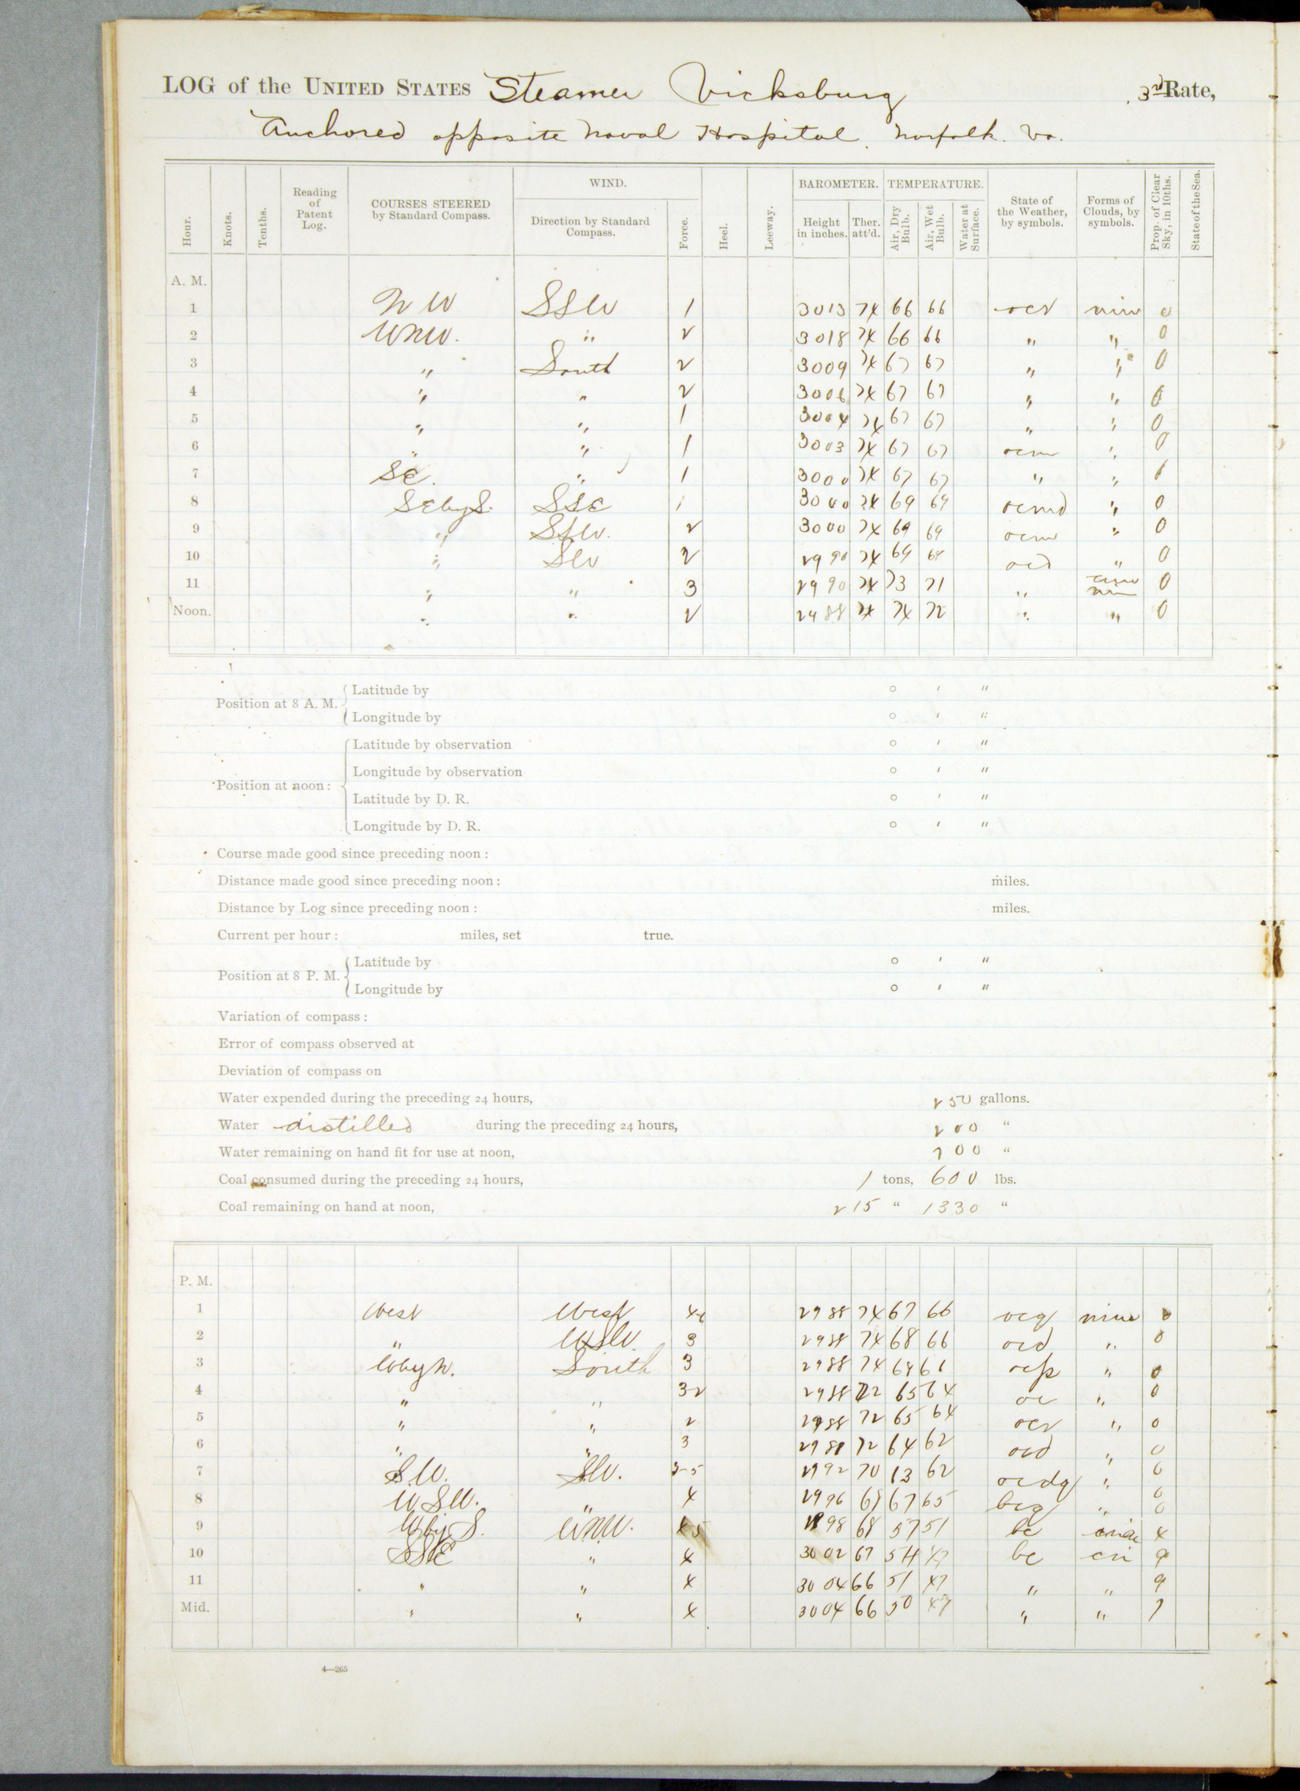 LOG of the UNITED STATES Steamer Vicksburg 3rd Rate,
Anchored opposite Naval Hospital. Norfolk. Va.
Hour. Knots. Tenths. Reading of Patent Log. COURSES STEERED by Standard Compass. WIND. Direction by Standard Compass. Force. Heel. Leeway. BAROMETER. Height in inches. Ther. att'd. TEMPERATURE. Air, Dry Bulb. Air, Wet Bulb. Water at Surface. State of the Weather, by symbols. Forms of Clouds, by symbols. Prop. of Clear Sky, in 10ths. State of the Sea.
A. M.
1 NW SSW 1 3013 74 66 66 ocr nim 0
2 WNW. " 2 3018 74 66 66 " " 0
3 " South 2 3009 74 67 67 " " 0
4 " " 2 3006 74 67 67 " " 0
5 " " 1 3004 74 67 67 " " 0
6 " " 1 3003 74 67 67 ocm " 0
7 SE. " 1 3000 74 67 67 " "
8 SEbyS. SSE 1 3000 74 69 69 ocmd " 0
9 " SSW. 2 3000 74 69 69 ocm " 0
10 " SW 2 2990 74 69 ocd " 0
11 " " 3 2990 74 73 71 " nim 0
Noon. " " 2 2988 74 74 72 " " 0
Position at 8 A. M. Latitude by ° ' "
Longitude by ° ' "
Position at noon: Latitude by observation ° ' "
Longitude by observation ° ' "
Latitude by D. R. ° ' "
Longitude by D. R. ° ' "
Course made good since preceding noon:
Distance made good since preceding noon: miles.
Distance by Log since preceding noon: miles.
Current per hour: miles, set true.
Position at 8 P. M. Latitude by ° ' "
Longitude by ° ' "
Variation of compass:
Error of compass observed at
Deviation of compass on
Water expended during the preceding 24 hours, 250 gallons.
Water distilled during the preceding 24 hours, 200 "
Water remaining on hand fit for use at noon, 700 "
Coal consumed during the preceding 24 hours, 1 tons, 600 lbs.
Coal remaining on hand at noon, 215 " 1330 "
P. M.
1 West West 2988 74 67 66 ocq nim 0
2 " WSW. 3 2988 74 68 66 ocd " 0
3 WbyN. South 3 2988 74 64 61 ocp " 0
4 " " 32 2988 72 65 64 oc " 0
5 " " 2 2988 72 65 64 ocr " 0
6 " " 3 2988 72 64 62 ocd " 0
7 S.W. SW. 2992 70 13 62 ocdq " 0
8 WSW. " 4 2996 69 67 65 bcq " 0
9 WbyS. WNW. 4 5 2998 68 57 51 bc 4
10 SSE " 4 3002 67 54 47 bc ci 9
11 " " 4 3004 66 51 47 " " 9
Mid. " " 4 3004 66 50 47 " " 7
4—265